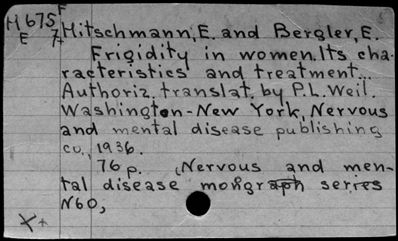 H675 F Hitschmann, E. and Bergler, E.
E 7+
Frigidity in women. Its cha-
racteristics and treatment...
Authoriz. translat. by P.L. Weil.
Washington-New York, Nervous
and mental disease publishing
co., 1936.
76 p. (Nervous and men-
tal disease monograph series
N60,